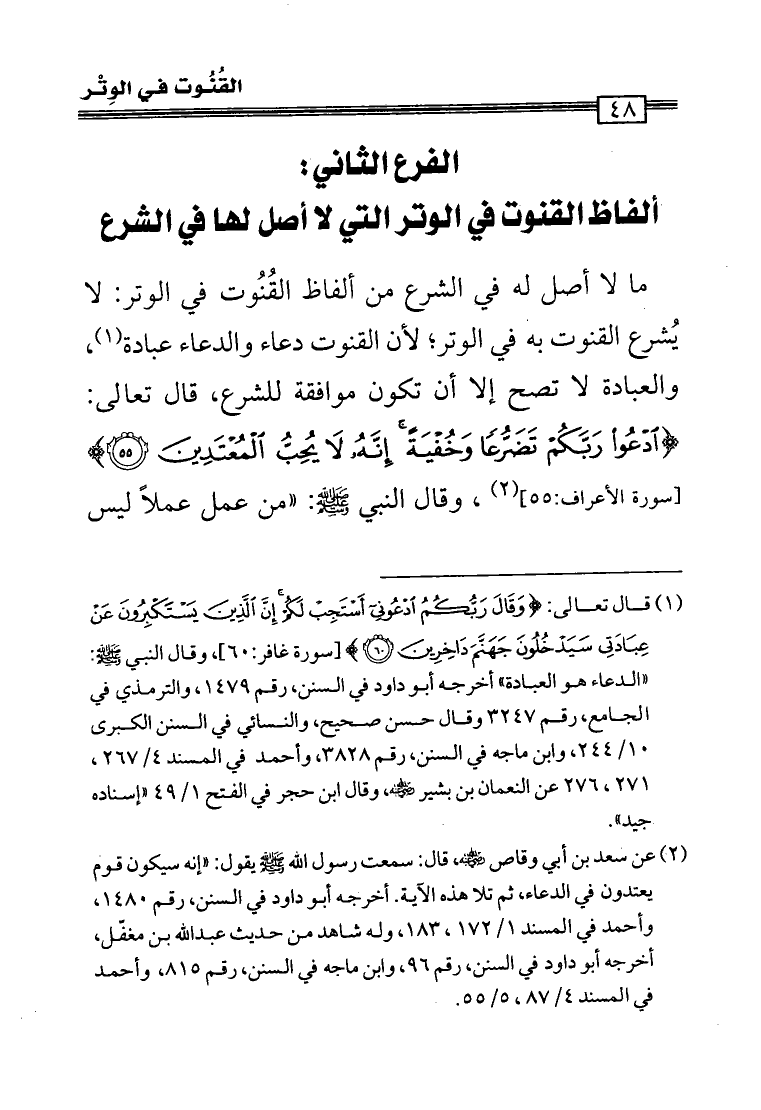 القُنُوت في الوِتْر
٤٨
الفرع الثاني:
ألفاظ القنوت في الوتر التي لا أصل لها في الشرع
ما لا أصل له في الشرع من ألفاظ القُنُوت في الوتر: لا
يُشرع القنوت به في الوتر؛ لأن القنوت دعاء والدعاء عبادة(١)،
والعبادة لا تصح إلا أن تكون موافقة للشرع، قال تعالى:
﴿ٱدْعُوا۟ رَبَّكُمْ تَضَرُّعًا وَخُفْيَةً ۚ إِنَّهُۥ لَا يُحِبُّ ٱلْمُعْتَدِينَ ٥٥﴾
[سورة الأعراف:٥٥](٢)، وقال النبي ﷺ: «من عمل عملاً ليس
(١) قال تعالى: ﴿وَقَالَ رَبُّكُمُ ٱدْعُونِىٓ أَسْتَجِبْ لَكُمْ ۚ إِنَّ ٱلَّذِينَ يَسْتَكْبِرُونَ عَنْ
عِبَادَتِى سَيَدْخُلُونَ جَهَنَّمَ دَاخِرِينَ ٦٠﴾ [سورة غافر:٦٠]، وقال النبي ﷺ:
«الدعاء هو العبادة» أخرجه أبو داود في السنن، رقم ١٤٧٩، والترمذي في
الجامع، رقم ٣٢٤٧ وقال حسن صحيح، والنسائي في السنن الكبرى
١٠/ ٢٤٤، وابن ماجه في السنن، رقم ٣٨٢٨، وأحمد في المسند ٤/ ٢٦٧،
٢٧١، ٢٧٦ عن النعمان بن بشير رضي الله عنه، وقال ابن حجر في الفتح ١/ ٤٩ «إسناده
جيد».
(٢) عن سعد بن أبي وقاص رضي الله عنه، قال: سمعت رسول الله ﷺ يقول: «إنه سيكون قوم
يعتدون في الدعاء، ثم تلا هذه الآية. أخرجه أبو داود في السنن، رقم ١٤٨٠،
وأحمد في المسند ١/ ١٧٢، ١٨٣، وله شاهد من حديث عبدالله بن مغفّل،
أخرجه أبو داود في السنن، رقم ٩٦، وابن ماجه في السنن، رقم ٨١٥، وأحمد
في المسند ٤/ ٨٧، ٥/ ٥٥.